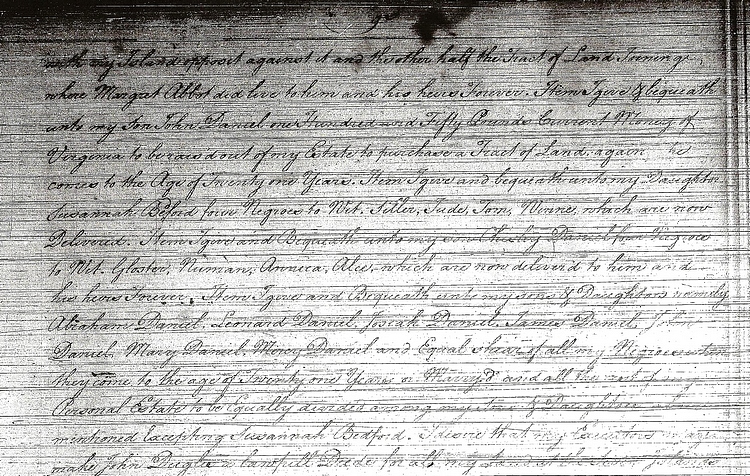 9
with my Island opposit against it and the other half the Tract of Land Joening
whare Margret Abbot did live to him and his heirs Forever. Item I give & bequeath
unto my Son John Daniel one Hundred and Fifty Pounds Current Money of
Virginia to be raisd out of my Estate to purchase a Tract of Land again he
comes to the Age of Twenty one Years. Item I give and bequeath unto my Daughter
Susannah Beford four Negroes to Wit. Siller, Jude, Tom, Winne, which are now
Delivered. Item I give and Bequeath unto my son Chesley Daniel four Negroes
to Wit. Gloster, Numan, Anneca, Alee, which are now deliverd to him and
his heirs Forever. Item I give and Bequeath unto my sons & Daughters namely
Abraham Daniel, Leonard Daniel, Josiah Daniel, James Daniel, John
Daniel, Mary Daniel, Mercy Daniel and Equal share of all my Negroes when
they come to the age of Twenty one Years or Marry'd and all the rest of my
Personal Estate to be Equally divided among my sons & Daughters
mentioned Excepting Susannah Bedford. I desire that my Executors
make John a Lawfull Deede for all my